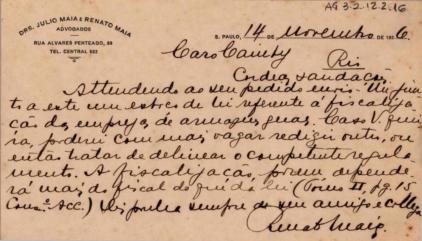 AG 3-2.12.2.16
DRS. JULIO MAIA E RENATO MAIA
ADVOGADOS
RUA ALVARES PENTEADO, 
TEL. CENTRAL 
S. PAULO, 14 de Novembro de 1926.
Caro Cainby
Rio
Cordeaes saudações
Attendendo ao seu pedido envio-lhe jun-
to a este um esboço de lei referente á fiscaliza-
ção da empreza de armazens geraes. Caso V. quei-
ra, poderei com mais vagar redigir outro, ou
então tratar de delinear o competente regula-
mento. A fiscalização, porém, depende-
rá mais do fiscal do que da lei (Tomo II, pg. 15
Acc.) sempre do seu amigo e collega
Renato Maia.